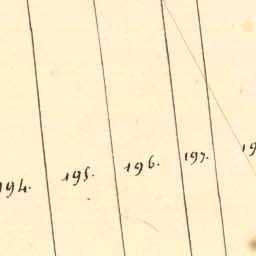 194.
195.
196.
197.